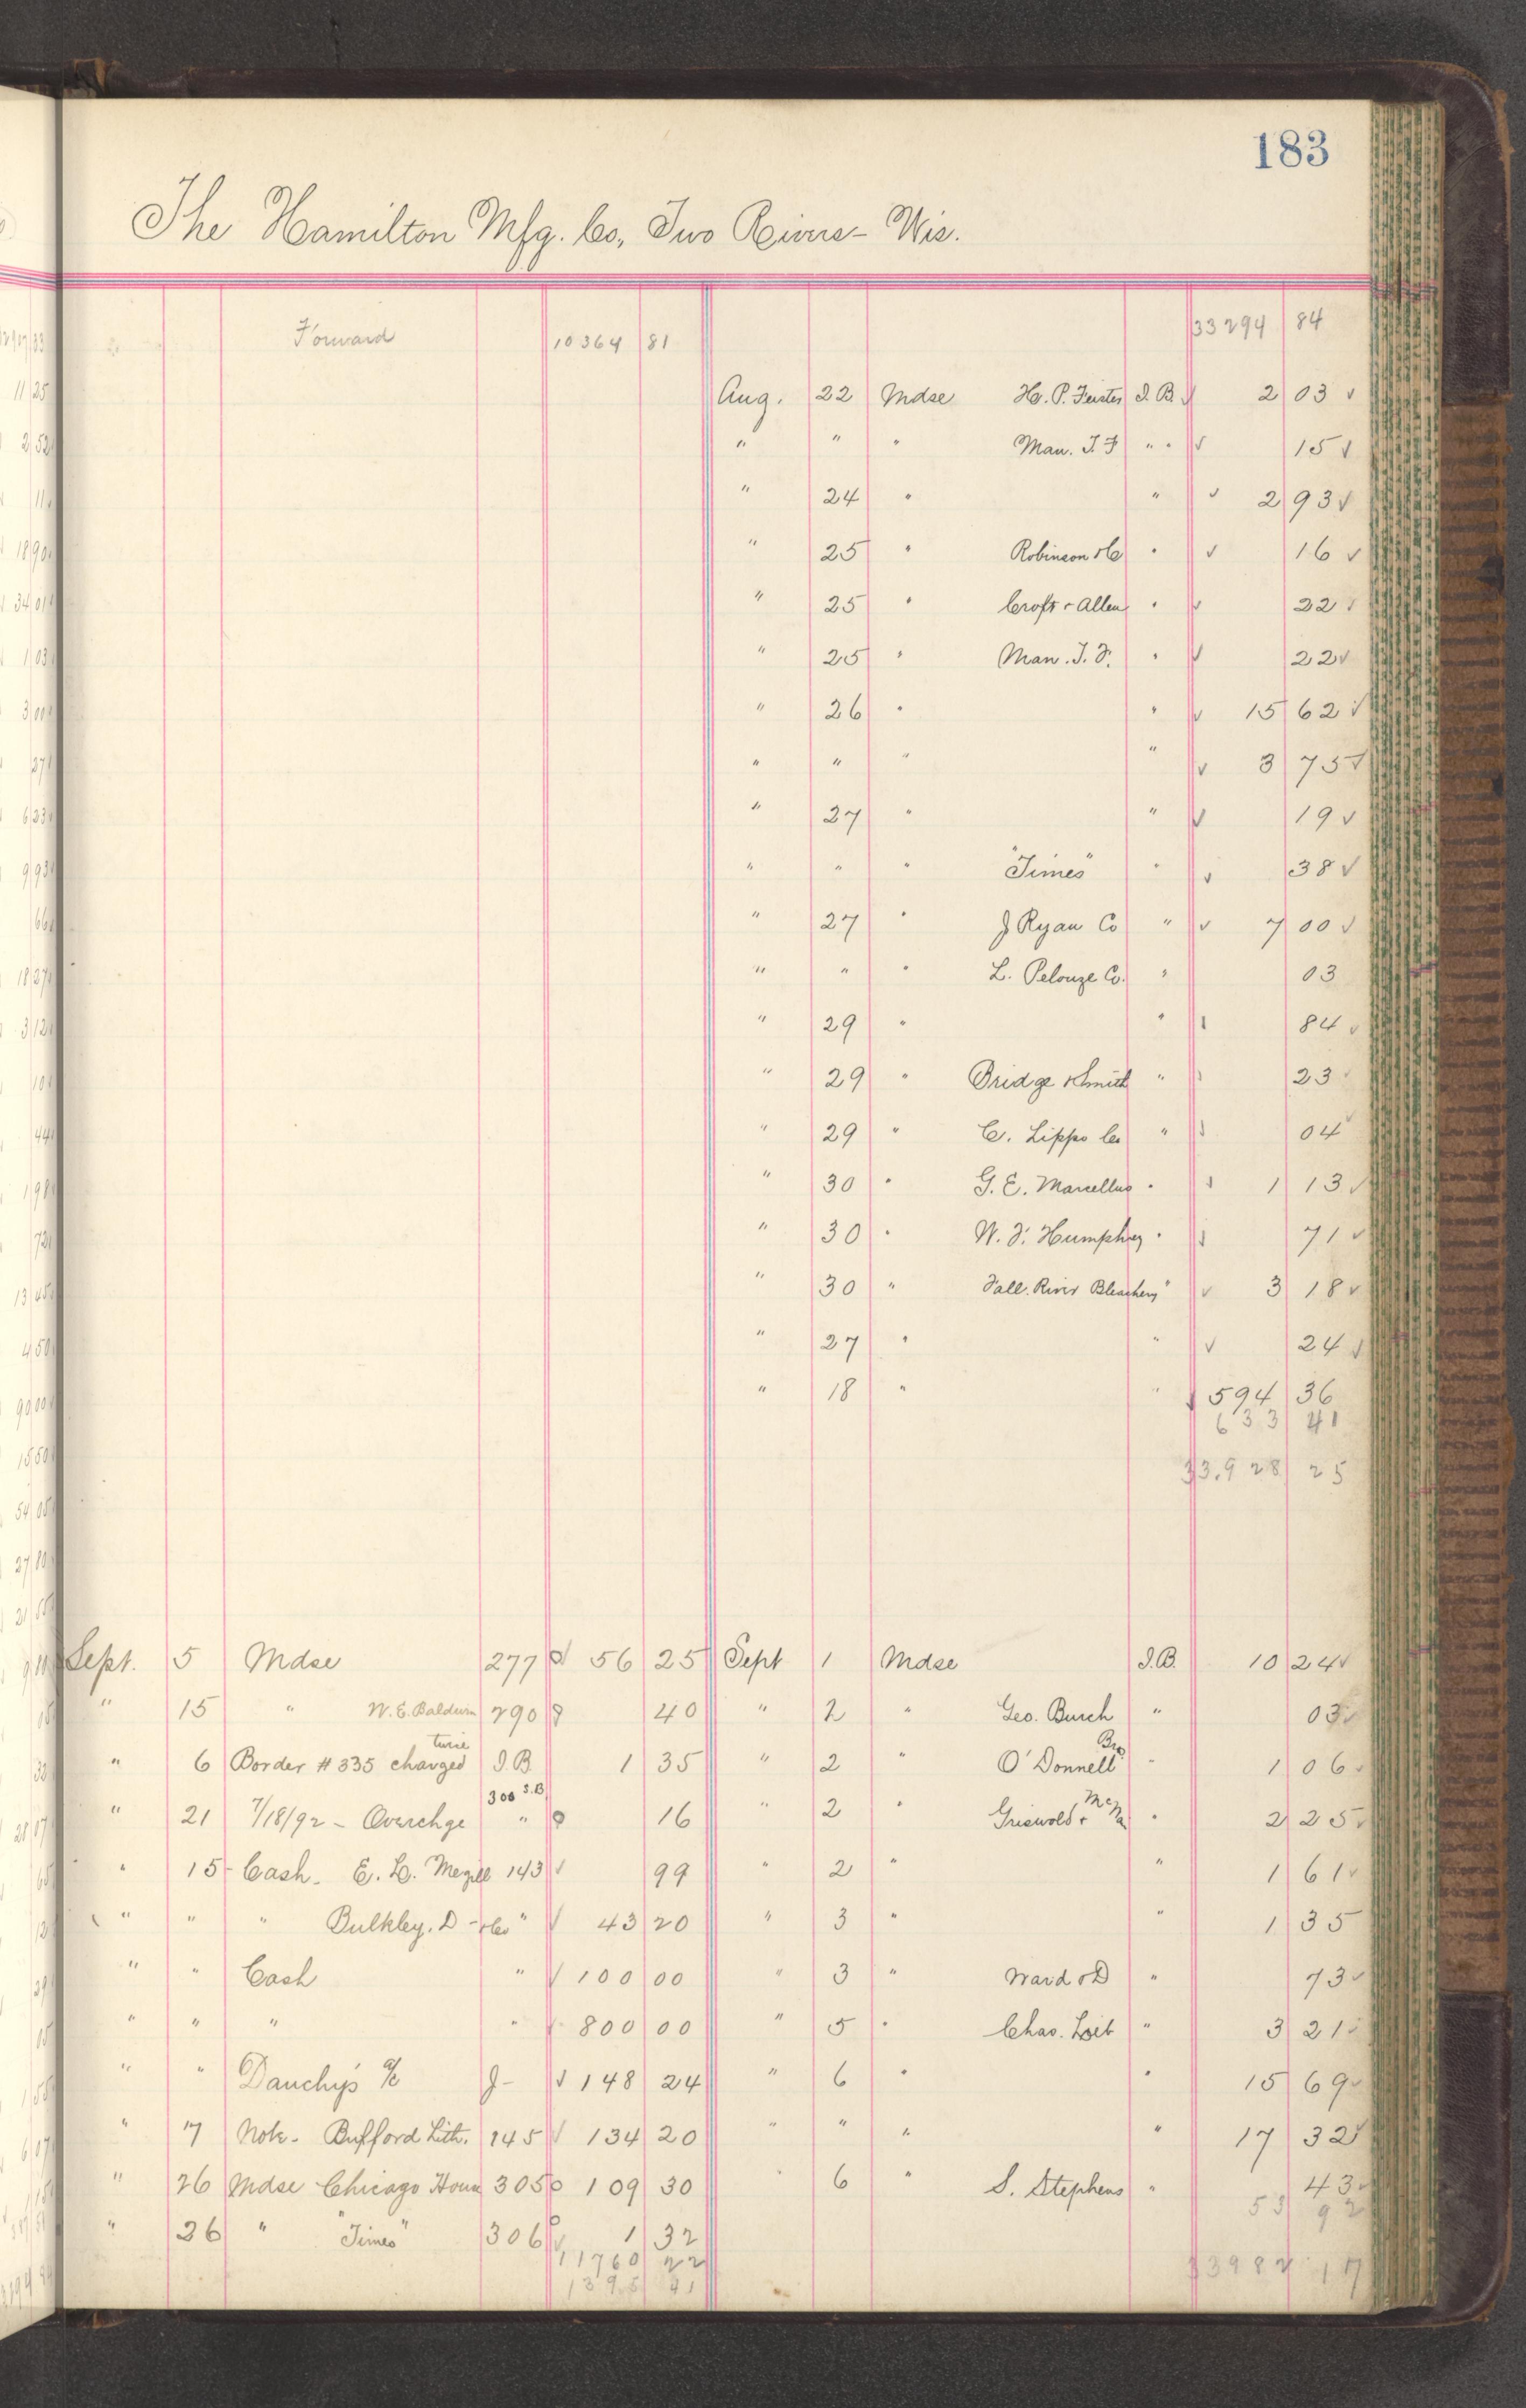 183
The Hamilton Mfg. Co., Two Rivers - Wis.
Forward 10364 81 33294 84
Aug. 22 Mdse H. P. Feister I. B. √ 2 03 √
" " " Man. T. F " " √ 15 √
" 24 " " √ 2 93 √
" 25 " Robinson & Co " √ 16 √
" 25 " Croft & Allen " √ 22 √
" 25 " Man. T. F. " √ 22 √
" 26 " " √ 15 62 √
" " " " √ 3 75 √
" 27 " " √ 19 √
" " " "Times" " √ 38 √
" 27 " J Ryan Co " √ 7 00 √
" " " L. Pelouze Co. " 03
" 29 " " √ 84 √
" 29 " Bridge & Smith " √ 23 √
" 29 " C. Lipps Co " √ 04 √
" 30 " G. E. Marcellus " √ 1 13 √
" 30 " W. F. Humphrey " √ 71 √
" 30 " Fall River Bleachery " √ 3 18 √
" 27 " " √ 24 √
" 18 " " √ 594 36
633 41
33.928 25
Sept. 5 Mdse 277 √ 56 25 Sept 1 Mdse I.B. 10 24 √
" 15 " W. E. Baldwin 290 40 " 2 " Geo. Burch " 03 √
" 6 Border # 335 charged twice I.B. 1 35 " 2 " O'Donnell Bro " 1 06 √
" 21 7/18/92 - Overchge 300 S.B. " 16 " 2 " Griswold & McNa " 2 25 √
" 15 - Cash - E. L. Megill 143 √ 99 " 2 " " 1 61 √
" " " Bulkley, D - & Co " √ 43 20 " 3 " " 1 35
" " Cash " √ 100 00 " 3 " Ward & D " 73 √
" " " " √ 800 00 " 5 " Chas. " 3 21 √
" " Dauchy's a/c J - √ 148 24 " 6 " " 15 69 √
" 7 Note - Bufford Lith. 145 √ 134 20 " " " " 17 32 √
" 26 Mdse Chicago House 305 109 30 " 6 " S. Stephens " 43 √
53 92
" 26 " "Times" 306 √ 1 32
11760 22
1395 41
33982 17